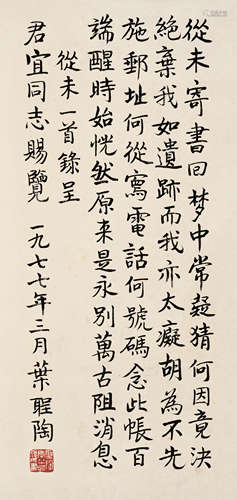 從未寄書回夢中常疑猜何因竟決
絕棄我如遺跡而我亦太癡胡為不先
施郵址何從寫電話何號碼念此帳百
端醒時始恍然原來是永別萬古阻消息
從未一首錄呈
君宜同志賜覽 一九七七年三月葉聖陶